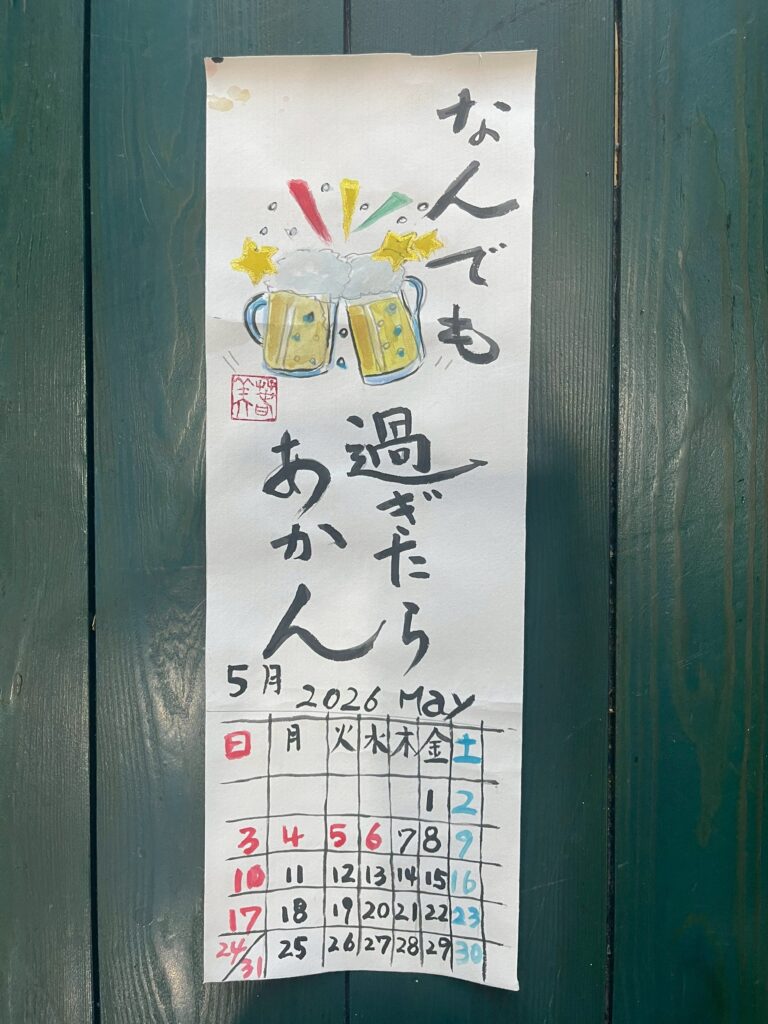 なんでも
過ぎたら
あかん
5月 2026 May
日 月 火 水 木 金 土
1 2
3 4 5 6 7 8 9
10 11 12 13 14 15 16
17 18 19 20 21 22 23
24/31 25 26 27 28 29 30